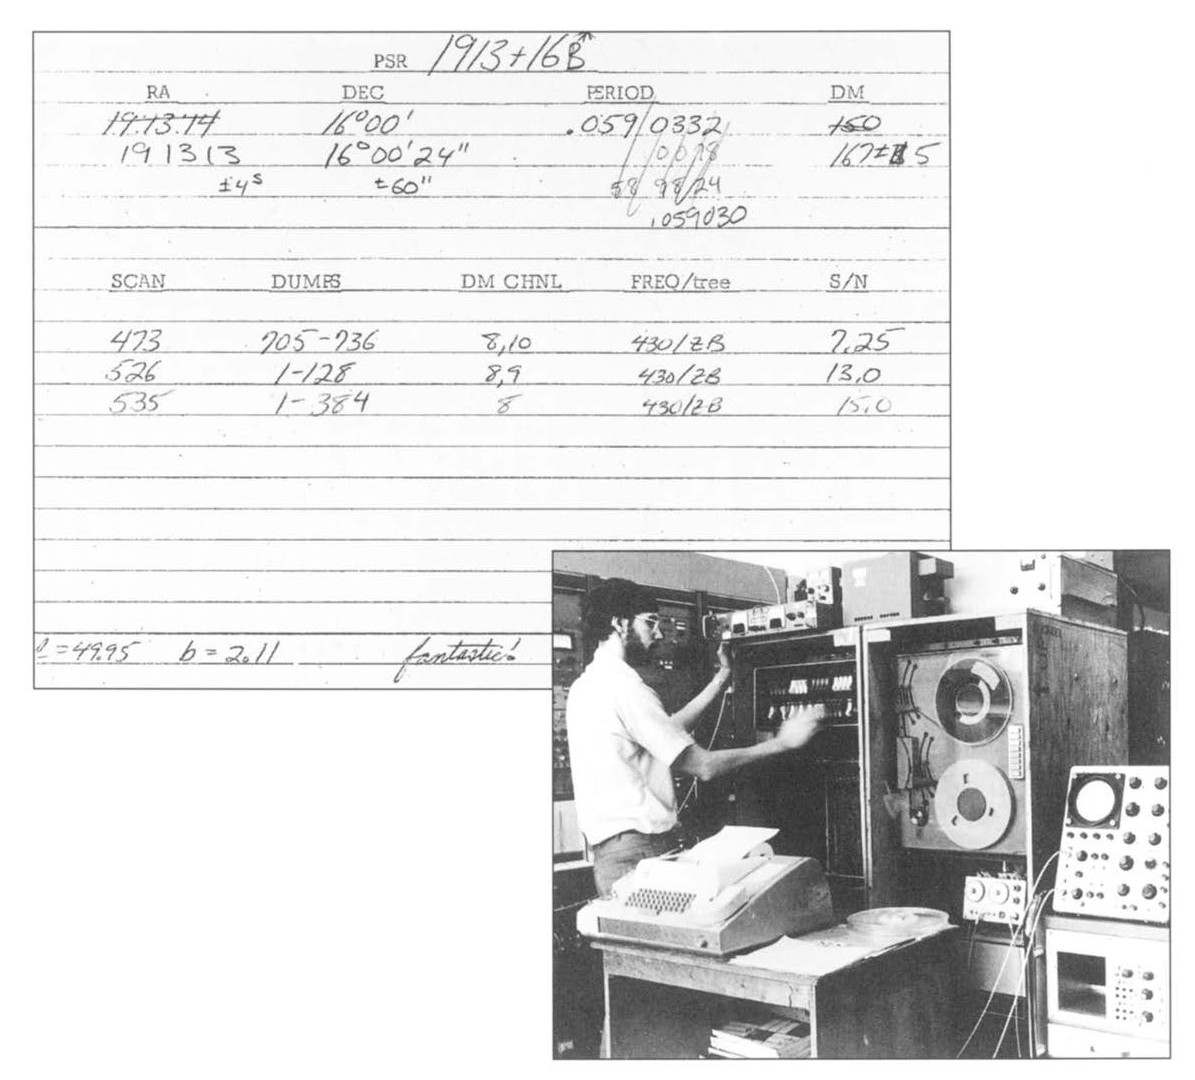 PSR 1913+16B
RA DEC PERIOD DM
19.13.14 16°00' .059/0332 150
19 13 13 16°00'24" 0018 167±5
±4ˢ ±60" 58 98/24
.059030
SCAN DUMPS DM CHNL FREQ/tree S/N
473 705-736 8,10 430/ZB 7.25
526 1-128 8,9 430/ZB 13.0
535 1-384 8 430/ZB 15.0
l=49.95 b=2.11 fantastic!